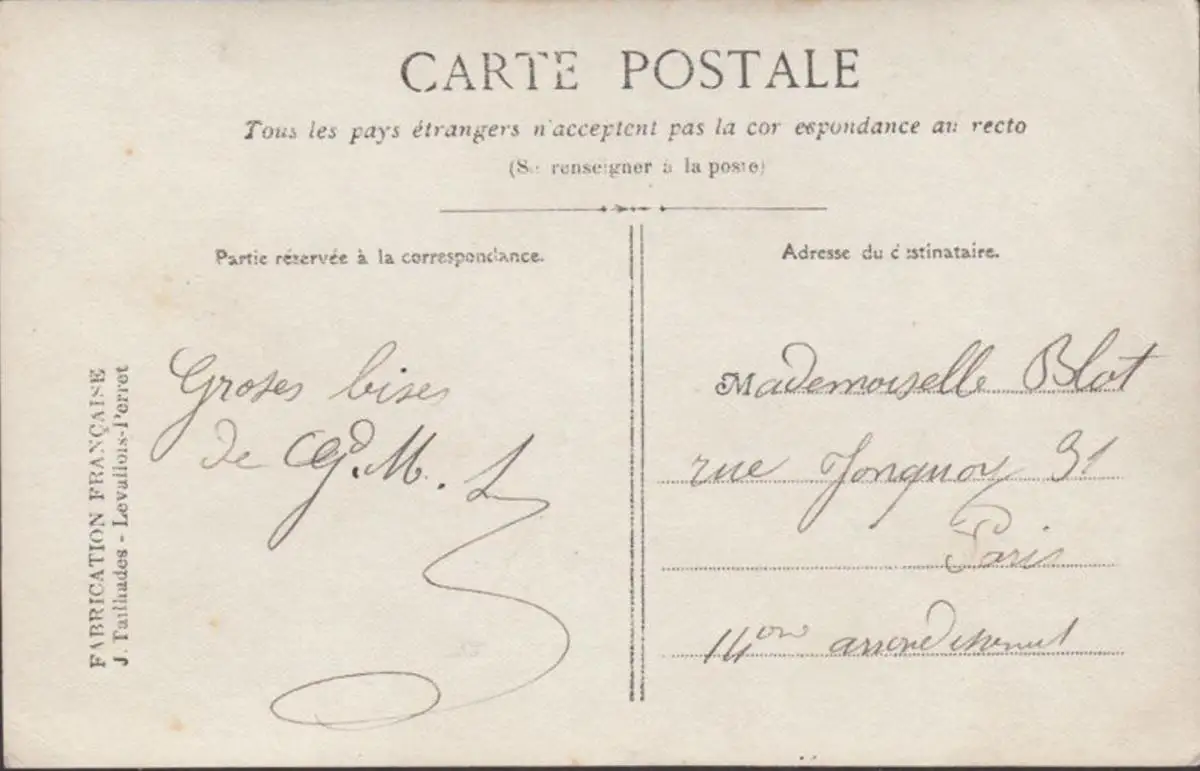 CARTE POSTALE
Tous les pays étrangers n'acceptent pas la correspondance au recto
(Se renseigner à la poste)
Partie réservée à la correspondance.
Adresse du destinataire.
FABRICATION FRANÇAISE
J. Tailhades - Levallois-Perret
Groses bises
de
M. L
Mademoiselle Blot
rue Jonquoy 31
Paris
14 arrondisement